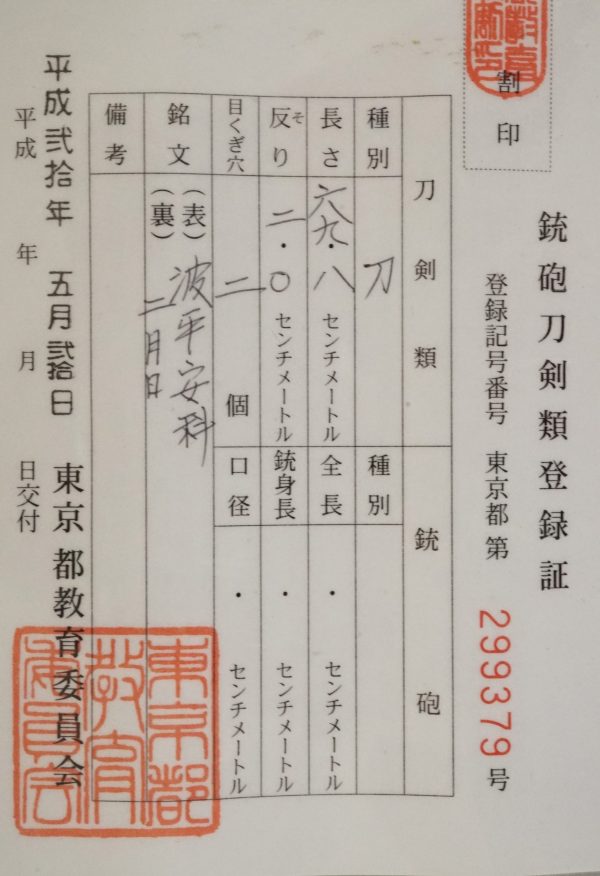 割印
銃砲刀剣類登録証
登録記号番号 東京都 第 299379 号
刀剣類
種別 刀
長さ 六九・八 センチメートル
反り 二・〇 センチメートル
そ
目くぎ穴 二 個
銘文 (表) 波平安科
(裏) 二月日
備考
銃砲
種別
全長 ・ センチメートル
銃身長 ・ センチメートル
口径 ・ センチメートル
平成弐拾年 五月弐拾日
平成 年 月 日交付
東京都教育委員会
東京都
教育
委員会